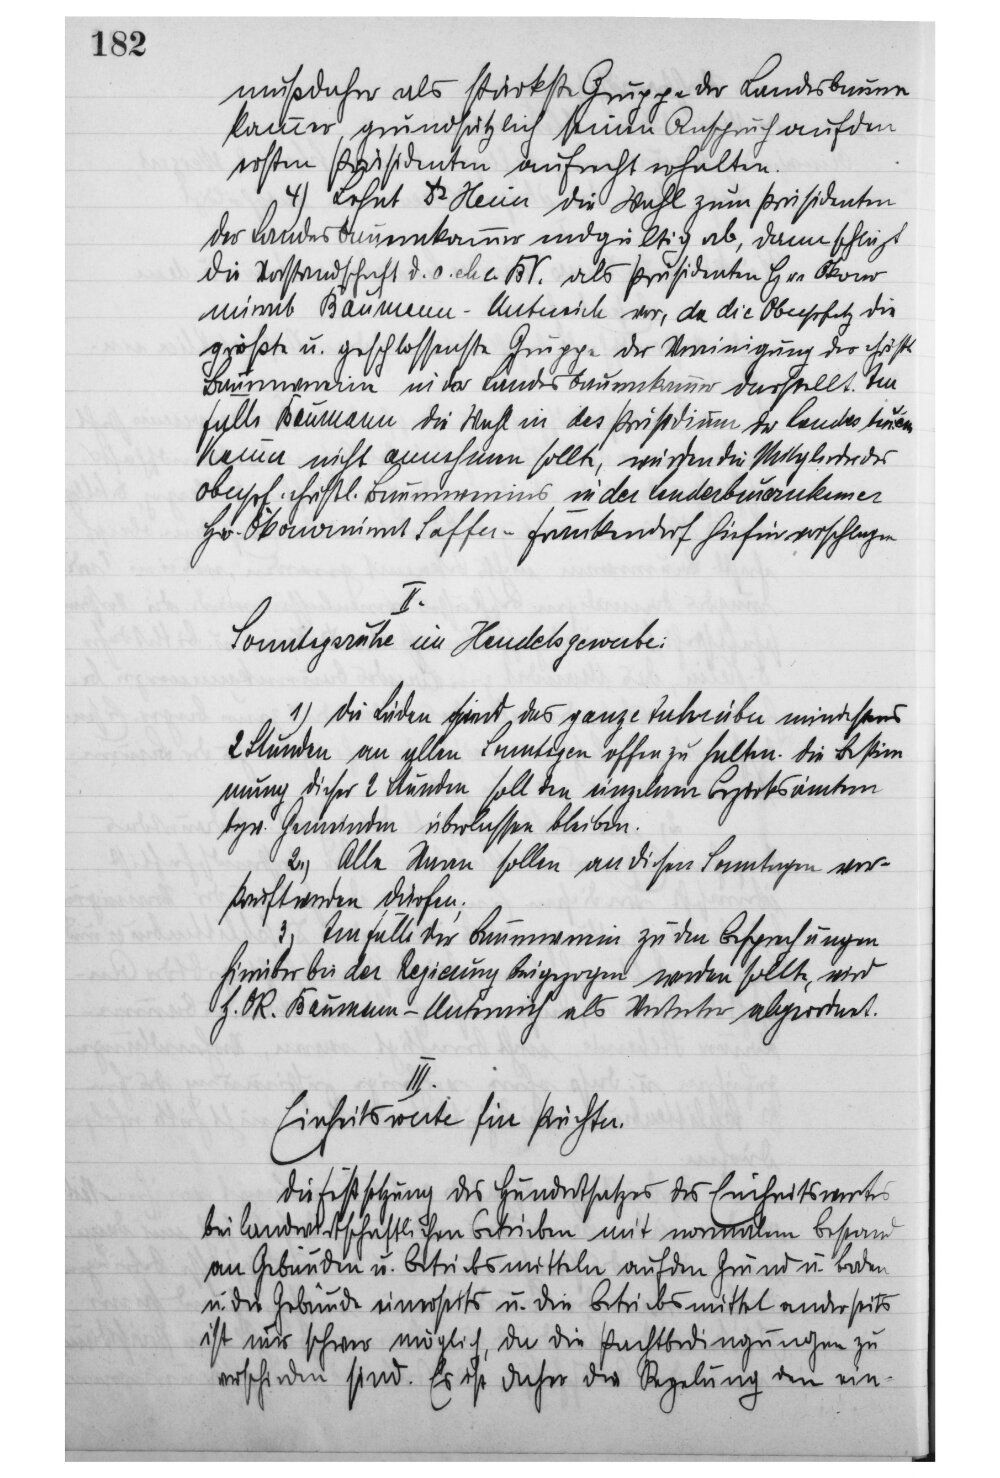 182
muß daher als stärkste Gruppe der Landesbauern
kammer, grundsätzlich seinen Anspruch auf den
ersten Präsidenten aufrecht erhalten.
4) Lehnt Dr Heim die Wahl zum Präsidenten
der Landesbauernkammer endgültig ab, dann schlägt
die Vorstandschaft d. o. ch. BV. als Präsidenten H. Ökono
mierat Baumann - vor, da die Oberpfalz die
größte u. geschlossenste Gruppe der Vereinigung der christl
Bauernvereine in der Landesbauernkammer darstellt. Im
falle Baumann die Wahl in das Präsidium der Landesbauern
kammer nicht annehmen sollte, würden die Mitglieder des
oberpf. christl. Bauernvereins in der Landesbauernkammer
Hr. Ökonomierat Saffer - Frankendorf hiefür vorschlagen
II.
Sonntagsruhe im Handelsgewerbe:
1) Die Läden sind das ganze Jahr über mindestens
2 Stunden an allen Sonntagen offen zu halten. Die Bestim
mung dieser 2 Stunden soll den einzelnen Bezirksämtern
bzw. Gemeinden überlassen bleiben.
2.) Alle Waren sollen an diesen Sonntagen ver-
kauft werden dürfen.
3) Im Falle der Bauernverein zu den Besprechungen
hierüber bei der Regierung beigezogen werden sollte, wird
H. ÖR. Baumann - als Vertreter abgeordnet.
III.
Einheitswerte für Pächter.
Die Festsetzung des Hundertsatzes des Einheitswertes
bei landwirtschaftlichen Betrieben mit normalem Bestand
an Gebäuden u. Betriebsmitteln auf den Grund u. Boden
u. die Gebäude einerseits u. die Betriebsmittel anderseits
ist nur schwer möglich, da die Pachtbedingungen zu
verschieden sind. Es ist daher die Regelung den ein-